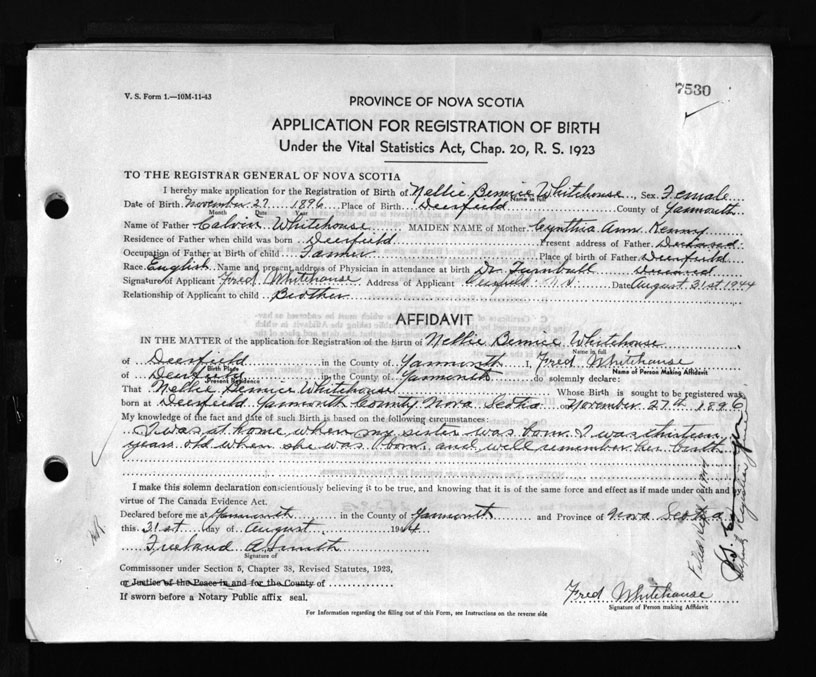 7530
V. S. Form 1.—10M-11-43
PROVINCE OF NOVA SCOTIA
APPLICATION FOR REGISTRATION OF BIRTH
Under the Vital Statistics Act, Chap. 20, R. S. 1923
TO THE REGISTRAR GENERAL OF NOVA SCOTIA
I hereby make application for the Registration of Birth of Nellie Bernice Whitehouse, Sex Female
Name in full
Date of Birth November 27 1896 Place of Birth Deerfield County of Yarmouth
Month Date Year
Name of Father Calvin Whitehouse MAIDEN NAME of Mother Cynthia Ann Kenny
Residence of Father when child was born Deerfield Present address of Father Deceased
Occupation of Father at Birth of child Farmer Place of Birth of Father Deerfield
Race English Name and present address of Physician in attendance at birth Dr. Turnbull Deceased
Signature of Applicant Fred Whitehouse Address of Applicant Deerfield N.S. Date August 31st 1944
Relationship of Applicant to child Brother
AFFIDAVIT
IN THE MATTER of the application for Registration of the Birth of Nellie Bernice Whitehouse
Name in full
of Deerfield in the County of Yarmouth I, Fred Whitehouse
Birth Place Name of Person Making Affidavit
of Deerfield in the County of Yarmouth do solemnly declare:
Present Residence
That Nellie Bernice Whitehouse Whose Birth is sought to be registered was
born at Deerfield Yarmouth County Nova Scotia November 27th 1896
My knowledge of the fact and date of such Birth is based on the following circumstances:
I was at home when my sister was born. I was thirteen
years old when she was born and will remember her birth
I make this solemn declaration conscientiously believing it to be true, and knowing that it is of the same force and effect as if made under oath and
virtue of The Canada Evidence Act.
Declared before me at Yarmouth in the County of Yarmouth and Province of Nova Scotia
this 31st day of August 1944
Freeland A. Smith
Signature of
Commissioner under Section 5, Chapter 38, Revised Statutes, 1923,
or Justice of the Peace in and for the County of
If sworn before a Notary Public affix seal.
Fred Whitehouse
Signature of Person making Affidavit
For Information regarding the filling out of this Form, see Instructions on the reverse side